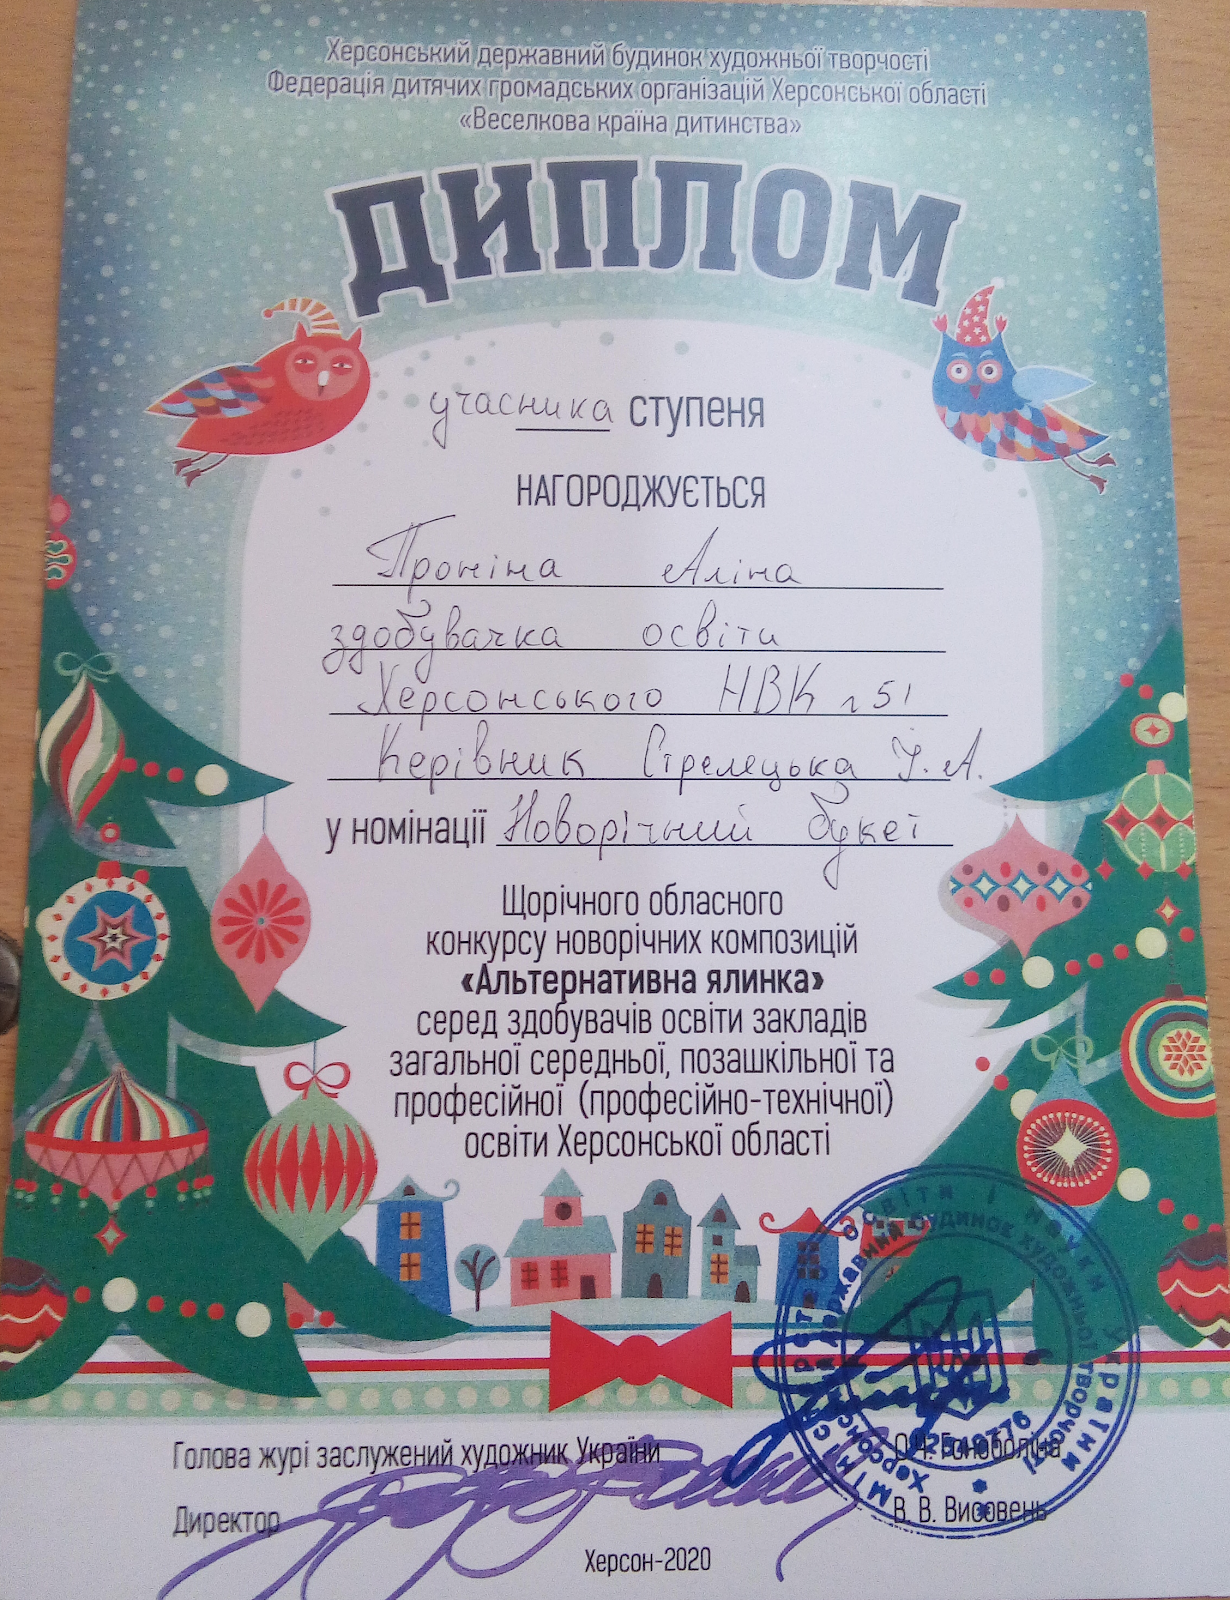 Херсонський державний будинок художньої творчості
Федерація дитячих громадських організацій Херсонської області
«Веселкова країна дитинства»
ДИПЛОМ
учасника ступеня
НАГОРОДЖУЄТЬСЯ
Проніна Аліна
здобувачка освіти
Херсонського НВК № 51
Керівник Стрелецька І. А.
у номінації Новорічний букет
Щорічного обласного
конкурсу новорічних композицій
«Альтернативна ялинка»
серед здобувачів освіти закладів
загальної середньої, позашкільної та
професійної (професійно-технічної)
освіти Херсонської області
Міністерство освіти і науки України
державний будинок художньої творчості
Голова журі заслужений художник України
Директор
В. В. Висовень
Херсон-2020